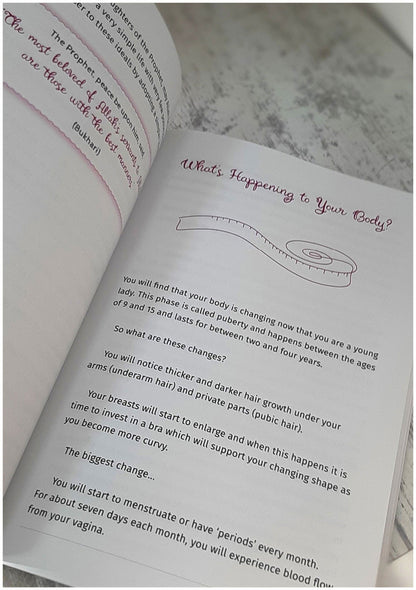 ughters of the Prophet
a very simple life with very
er to these ideals by adopting a
The Prophet, peace be upon him, said
The most beloved of Allah's servants to
are those with the best manners.
(Bukhari)
What's Happening to Your Body?
You will find that your body is changing now that you are a young
lady. This phase is called puberty and happens between the ages
of 9 and 15 and lasts for between two and four years.
So what are these changes?
You will notice thicker and darker hair growth under your
arms (underarm hair) and private parts (pubic hair).
Your breasts will start to enlarge and when this happens it is
time to invest in a bra which will support your changing shape as
you become more curvy.
The biggest change...
You will start to menstruate or have ‘periods’ every month.
For about seven days each month, you will experience blood flow
from your vagina.